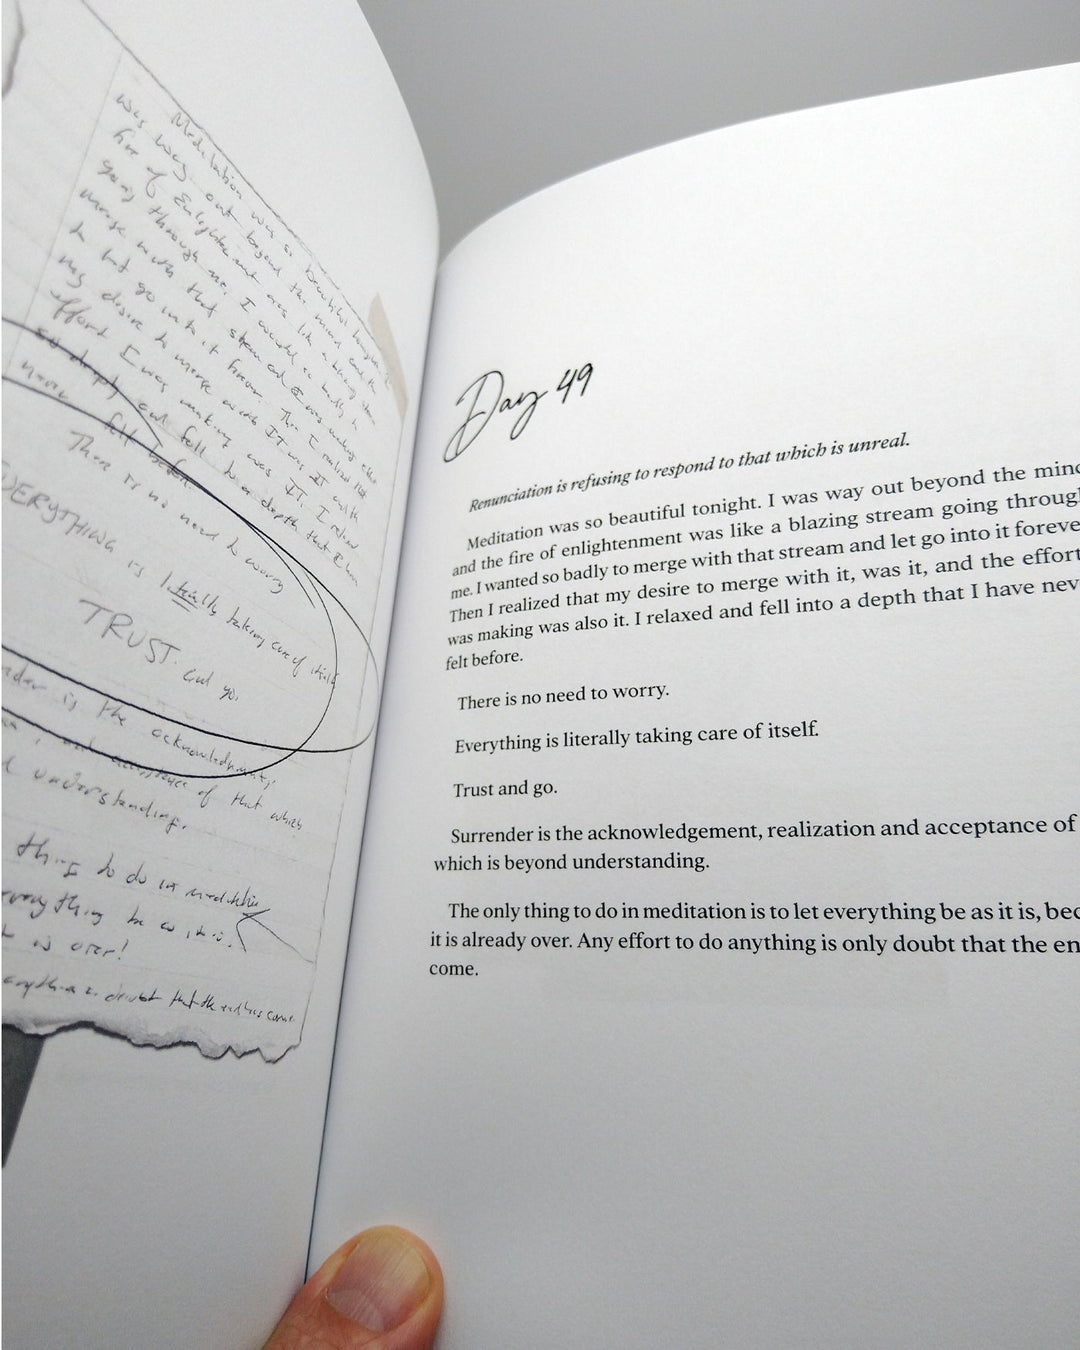 Meditation was so beautiful tonight. I
was way out beyond the mind and the
fire of Enlightenment was like a blazing stream
going through me. I wanted so badly to
merge with that stream and I was making effort
to let go into it forever. Then I realized that
my desire to merge with IT was IT and the
effort I was making was IT. I relaxed
so deeply and fell to a depth that I have
never felt before.
There is no need to worry
EVERYTHING is literally taking care of itself
TRUST and go.
is the acknowledgment,
and acceptance of that which
understanding.
thing to do in meditation
everything be as it is.
is over!
anything is doubt that the end has come.
Day 49
Renunciation is refusing to respond to that which is unreal.
Meditation was so beautiful tonight. I was way out beyond the mind
and the fire of enlightenment was like a blazing stream going through
me. I wanted so badly to merge with that stream and let go into it foreve
Then I realized that my desire to merge with it, was it, and the effort
was making was also it. I relaxed and fell into a depth that I have nev
felt before.
There is no need to worry.
Everything is literally taking care of itself.
Trust and go.
Surrender is the acknowledgement, realization and acceptance of
which is beyond understanding.
The only thing to do in meditation is to let everything be as it is, bec
it is already over. Any effort to do anything is only doubt that the en
come.